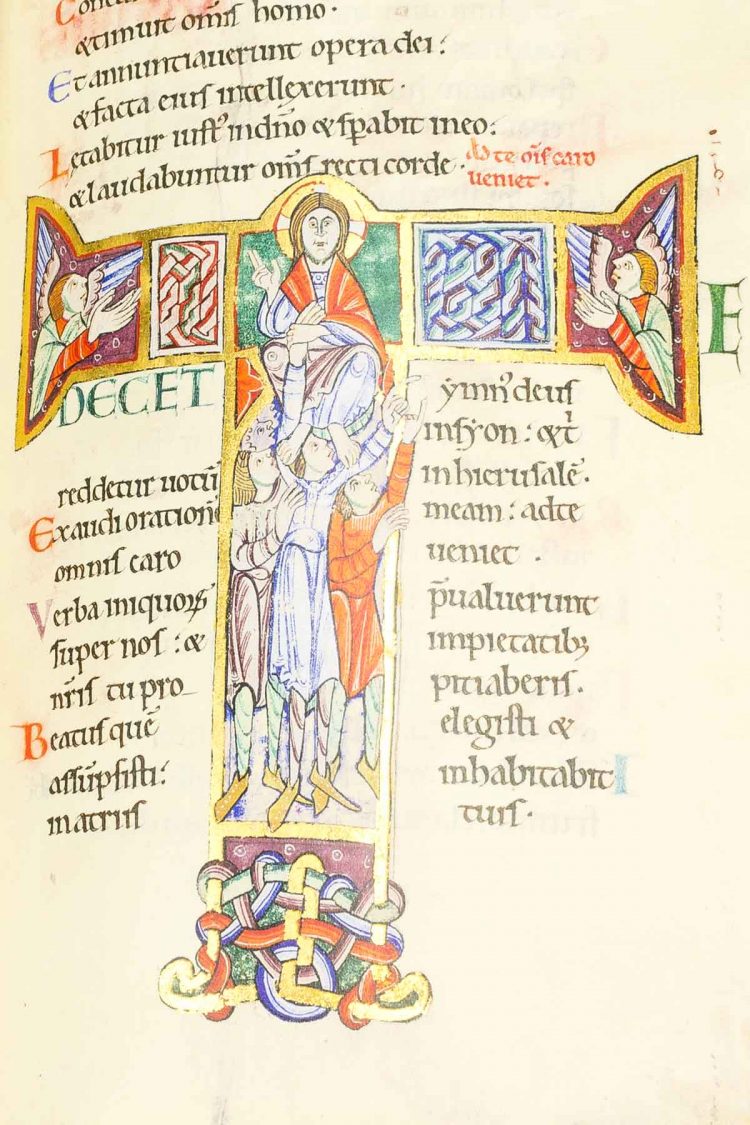 & timuit omis homo.
Et annuntiaverunt opera dei:
& facta eius intellexerunt.
Letabitur iust' in dño & spabit in eo:
& laudabuntur oms recti corde. Ad te ois caro
veniet.
T E
DECET ẏmn' deus
in sẏon: & t
reddetur votũ in hierusalẽ.
Exaudi orationẽ meam: ad te
omnis caro veniet.
Verba iniquorꝝ p̃ualuerunt
super nos: & impietatib;
nr̃is tu pro pitiaberis.
Beatus quẽ elegisti &
assũpsisti: inhabitabit I
in atriis tuis.